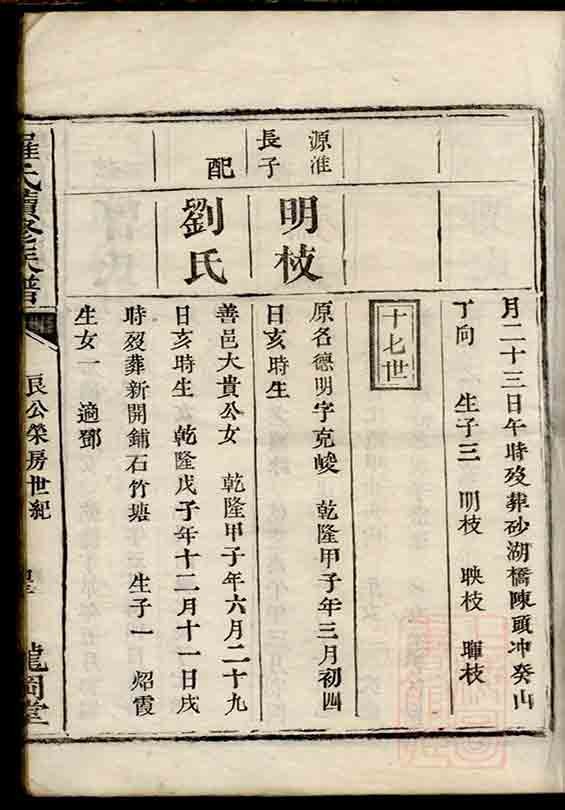 月二十三日午時歿葬砂湖橋陳頭冲癸山
丁向 生子三 明枝 映枝 暉枝
十七世
源淮
長子
明枝
原名德明字克峻 乾隆甲子年三月初四
日亥時生
配
劉氏
善邑大貴公女 乾隆甲子年六月二十九
日亥時生 乾隆戊子年十二月十一日戌
時歿葬新開鋪石竹塘 生子一 炤霞
生女一 適鄧
羅氏續修族譜
良公榮房世紀
龍岡堂